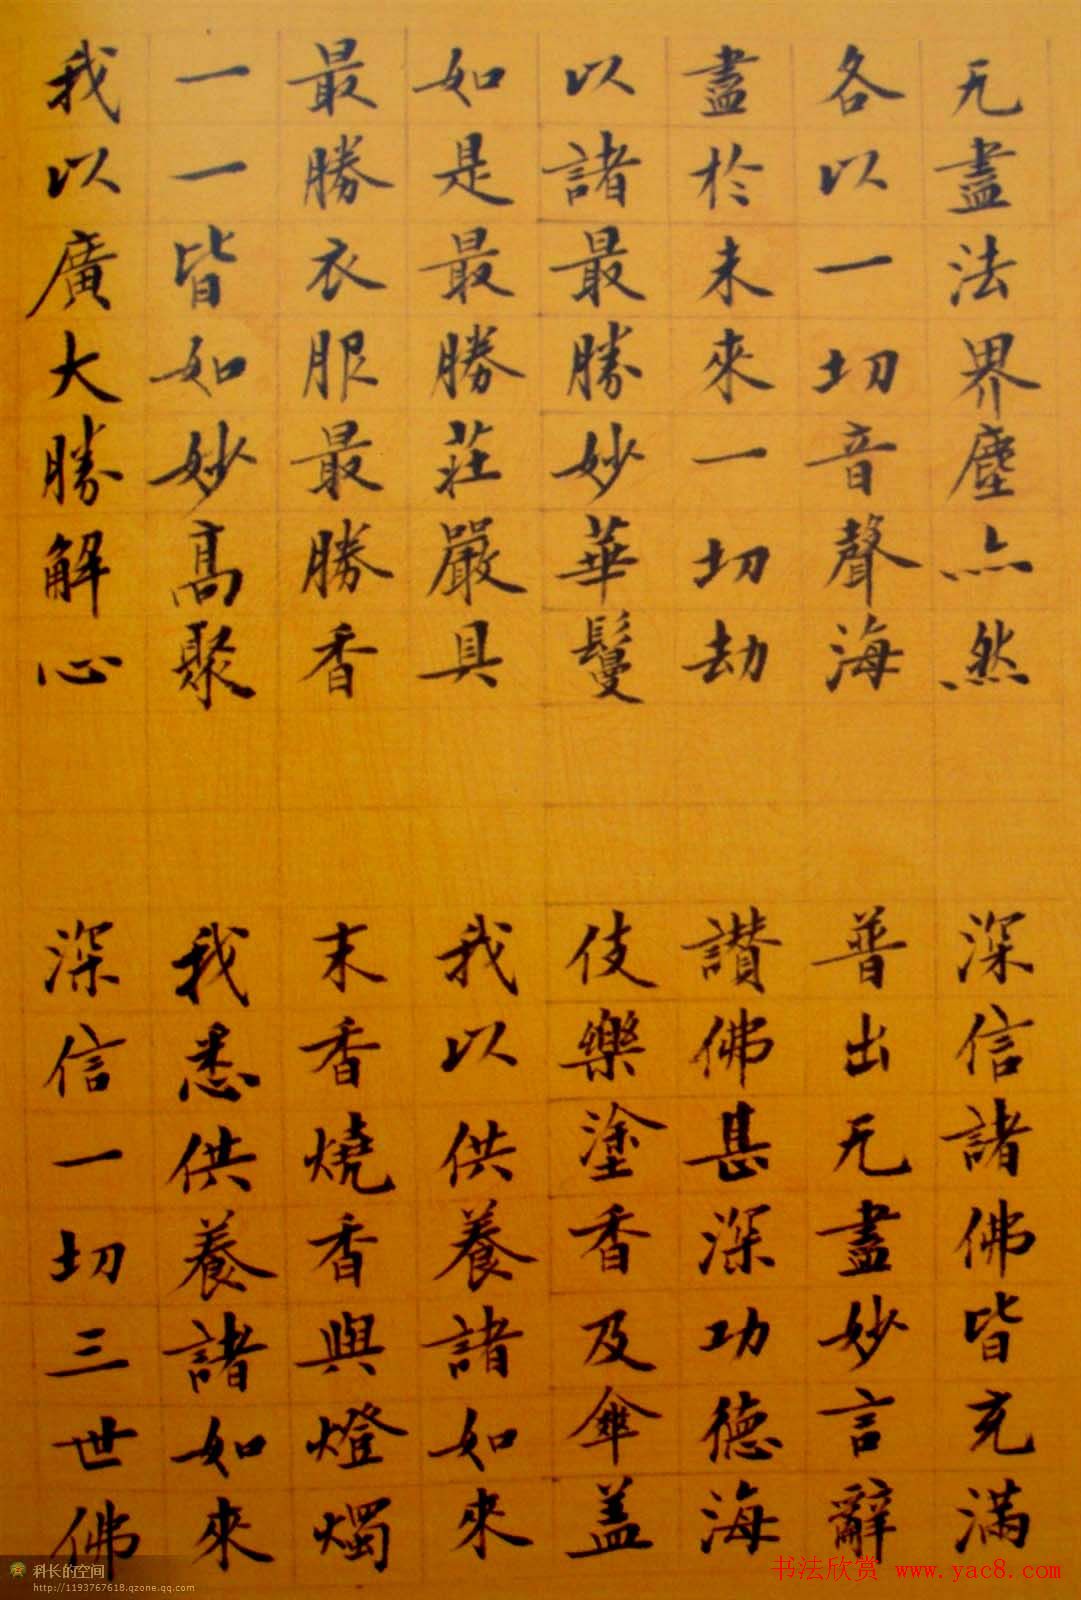 无盡法界塵亦然
深信諸佛皆充滿
各以一切音聲海
普出无盡妙言辭
盡於未來一切劫
讚佛甚深功德海
以諸最勝妙華鬘
伎樂塗香及傘盖
如是最勝莊嚴具
我以供養諸如來
最勝衣服最勝香
末香燒香與燈燭
一一皆如妙高聚
我悉供養諸如來
我以廣大勝解心
深信一切三世佛
科长的空间
http://1193767618.qzone.qq.com
书法欣赏 www.yac8.com